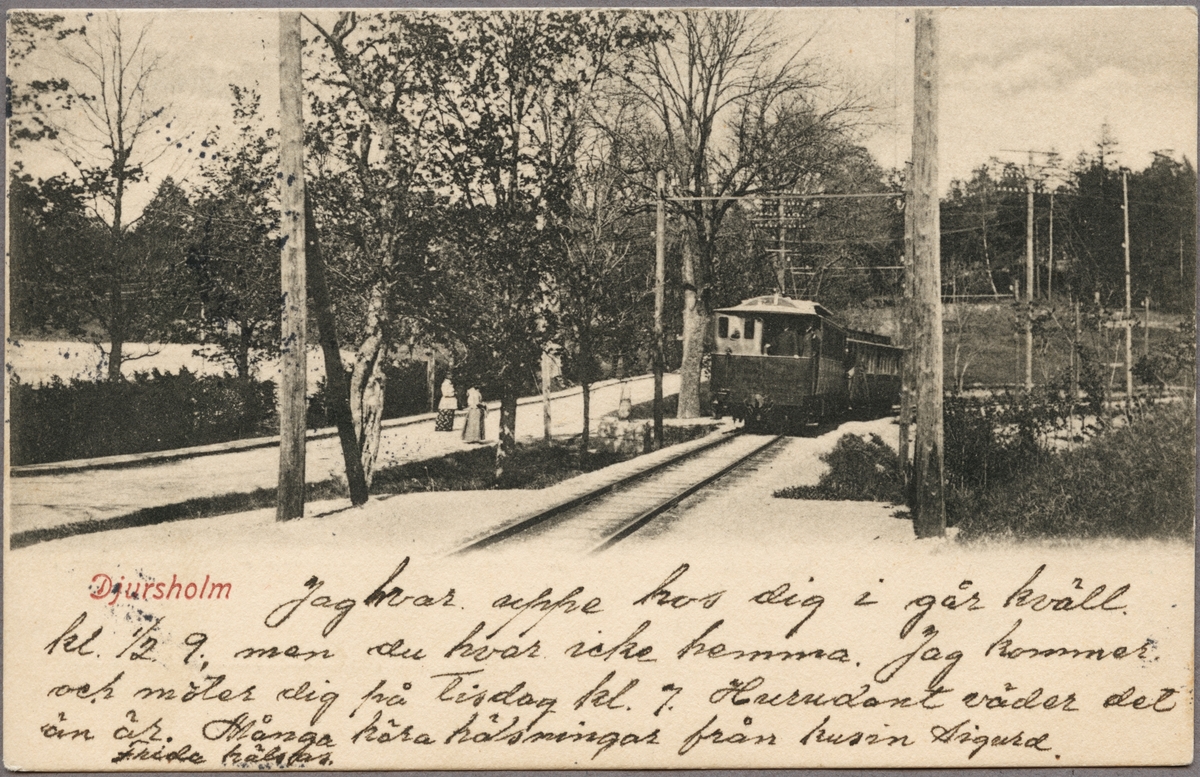 Djursholm
Jag hvar uppe hos dig i går kväll.
kl. 1/2 9., men du hvar icke hemma. Jag kommer
och möter dig på Tisdag kl. 7. Hurudant väder det
än är. Många kära hälsningar från kusin Sigurd.
Frida hälsas.